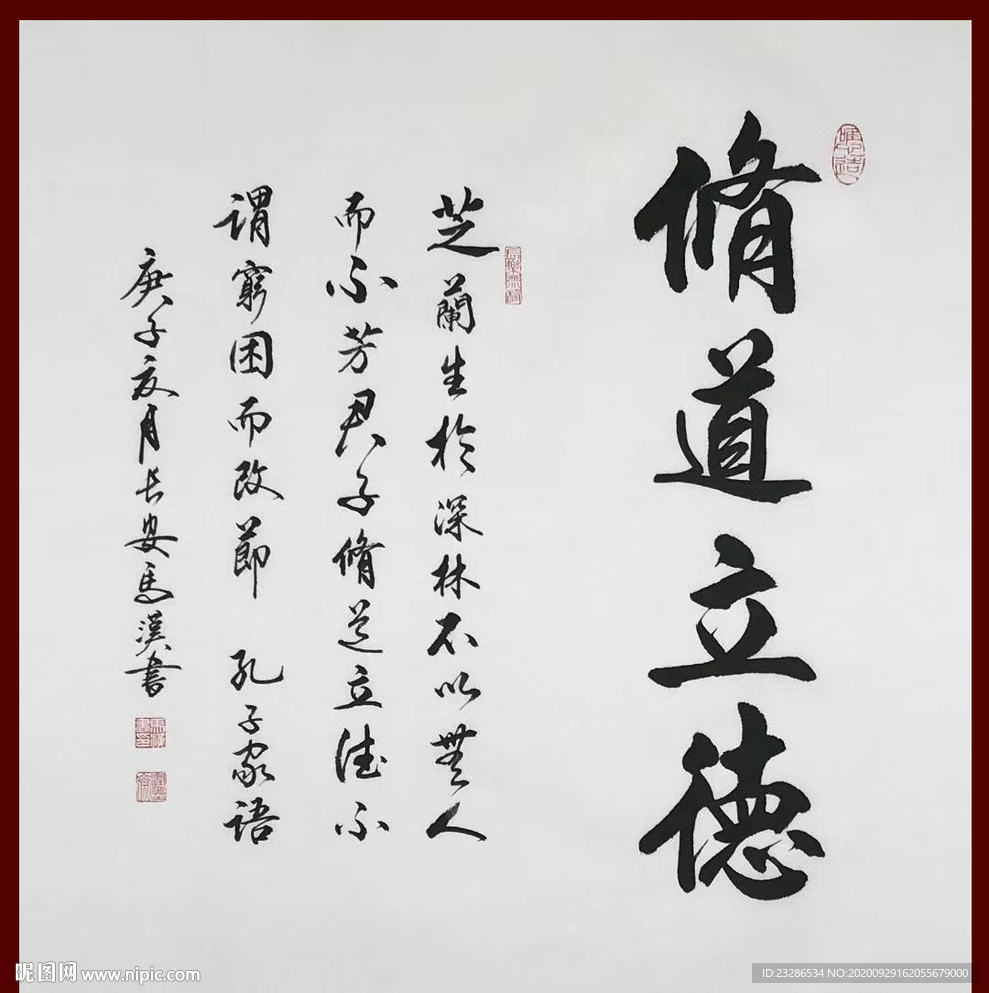 脩道立德
芝蘭生於深林不以無人
而不芳君子脩道立德不
谓窮困而改節 孔子家语
庚子夏月长安馬漢書
昵图网 www.nipic.com
ID:23286534 NO:20200929162055679000